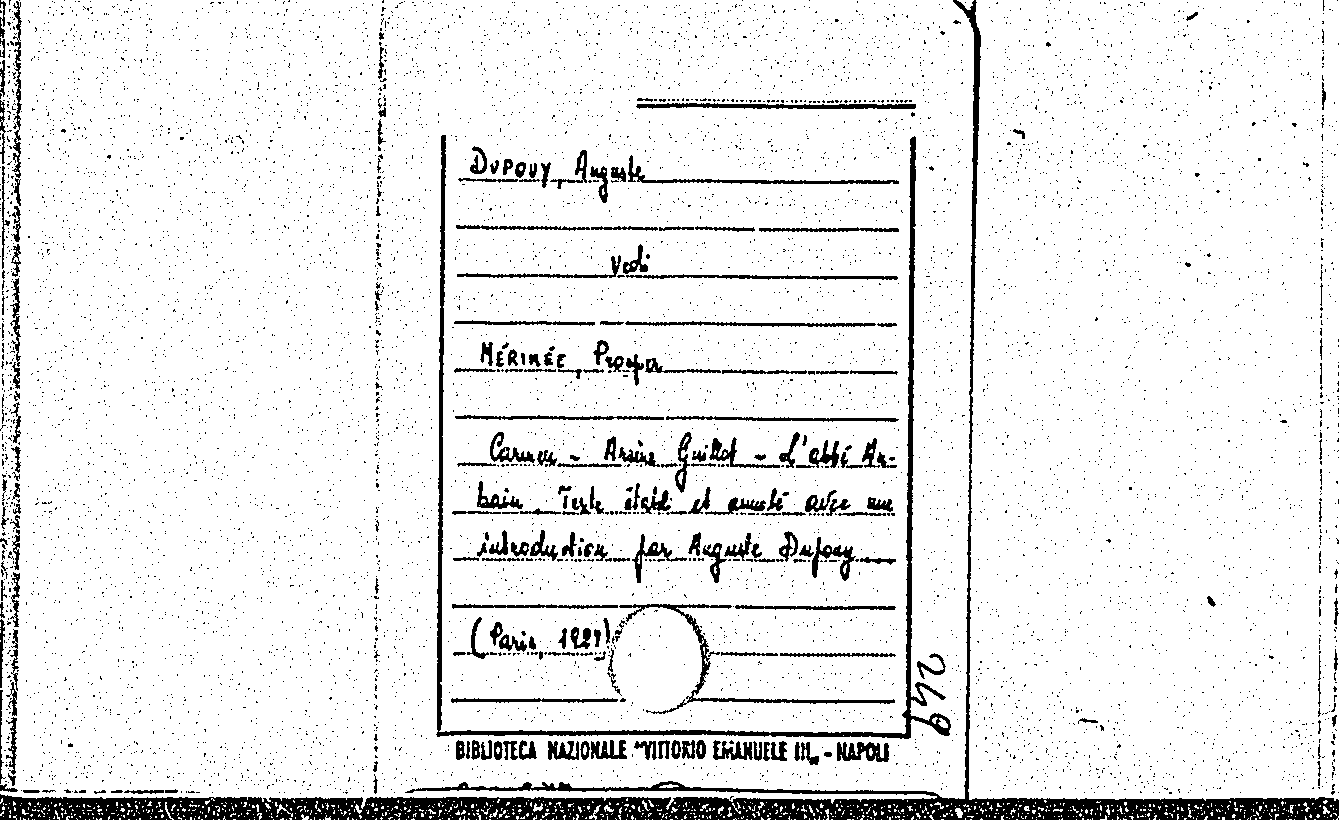 DUPOUY, Auguste
Vedi
MÉRIMÉE, Prosper
Carmen - Arsène Guillot - L'abbé Au-
bain. Texte établi et annoté avec une
introduction par Auguste Dupouy ...
(Paris, 1927)
BIBLIOTECA NAZIONALE "VITTORIO EMANUELE III„ - NAPOLI